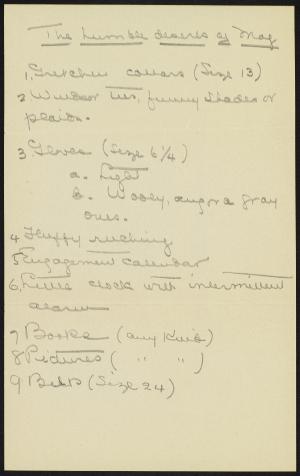 The humble deserts of Mag
1. Gretchen collars (Size 13)
2. Windsor ties, funny shades or
plaids.
3. Gloves (Size 6 1/4)
a. Light
b. Wooly, angora gray
ones.
4 Fluffy ruching
5 Engagement calendar
6. Little clock with intermittent
alarm
7 Books (any kind)
8 Pictures ( " " )
9 Belts (Size 24)